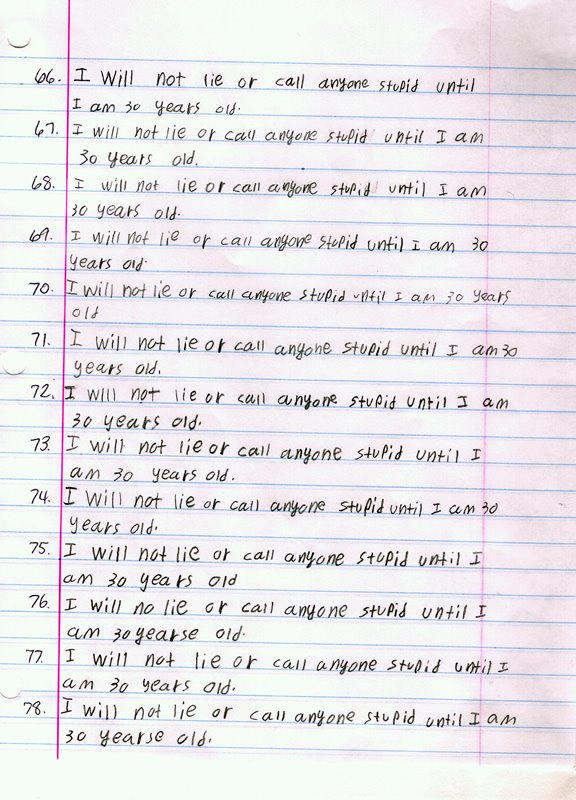 66. I Will not lie or call anyone stupid until
I am 30 years old.
67. I will not lie or call anyone stupid until I am
30 years old.
68. I will not lie or call anyone stupid until I am
30 years old.
69. I will not lie or call anyone stupid until I am 30
years old.
70. I will not lie or call anyone stupid until I am 30 years
old
71. I will not lie or call anyone stupid until I am 30
years old.
72. I will not lie or call anyone stupid until I am
30 years old.
73. I will not lie or call anyone stupid until I
am 30 years old.
74. I will not lie or call anyone stupid until I am 30
years old.
75. I will not lie or call anyone stupid until I
am 30 years old
76. I will no lie or call anyone stupid until I
am 30 yearse old.
77. I will not lie or call anyone stupid until I
am 30 years old.
78. I will not lie or call anyone stupid until I am
30 yearse old.